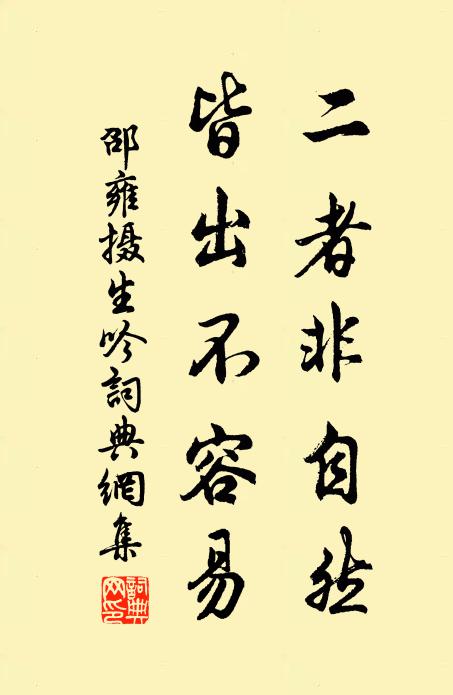 二者非自然
皆出不容易
邵雍摄生吟詞典網集
詞典网印